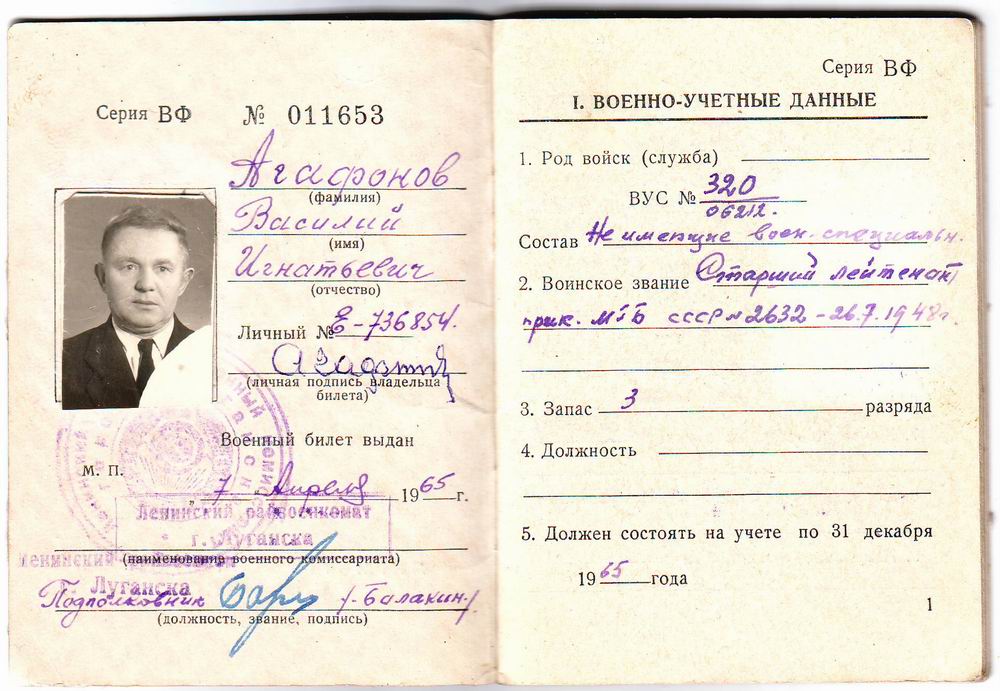 Серия ВФ № 011653
Агафонов
(фамилия)
Василий
(имя)
Игнатьевич
(отчество)
Личный № -736854.
(личная подпись владельца
билета)
Военный билет выдан
М. П.
„7 Апреля 1965 г.
Ленинский райвоенкомат
г. Луганска
(наименование военного комиссариата)
Ленинский
г. Луганска
Подполковник /-Балакин-/
(должность, звание, подпись)
Серия ВФ
I. ВОЕННО-УЧЕТНЫЕ ДАННЫЕ
1. Род войск (служба)
ВУС № 320
06212.
Состав Не имеющие воен. специальн.
2. Воинское звание Старший лейтенант
прик. МГБ СССР № 2632 - 26.7.1948г.
3. Запас 3 разряда
4. Должность
5. Должен состоять на учете по 31 декабря
1965 года
1